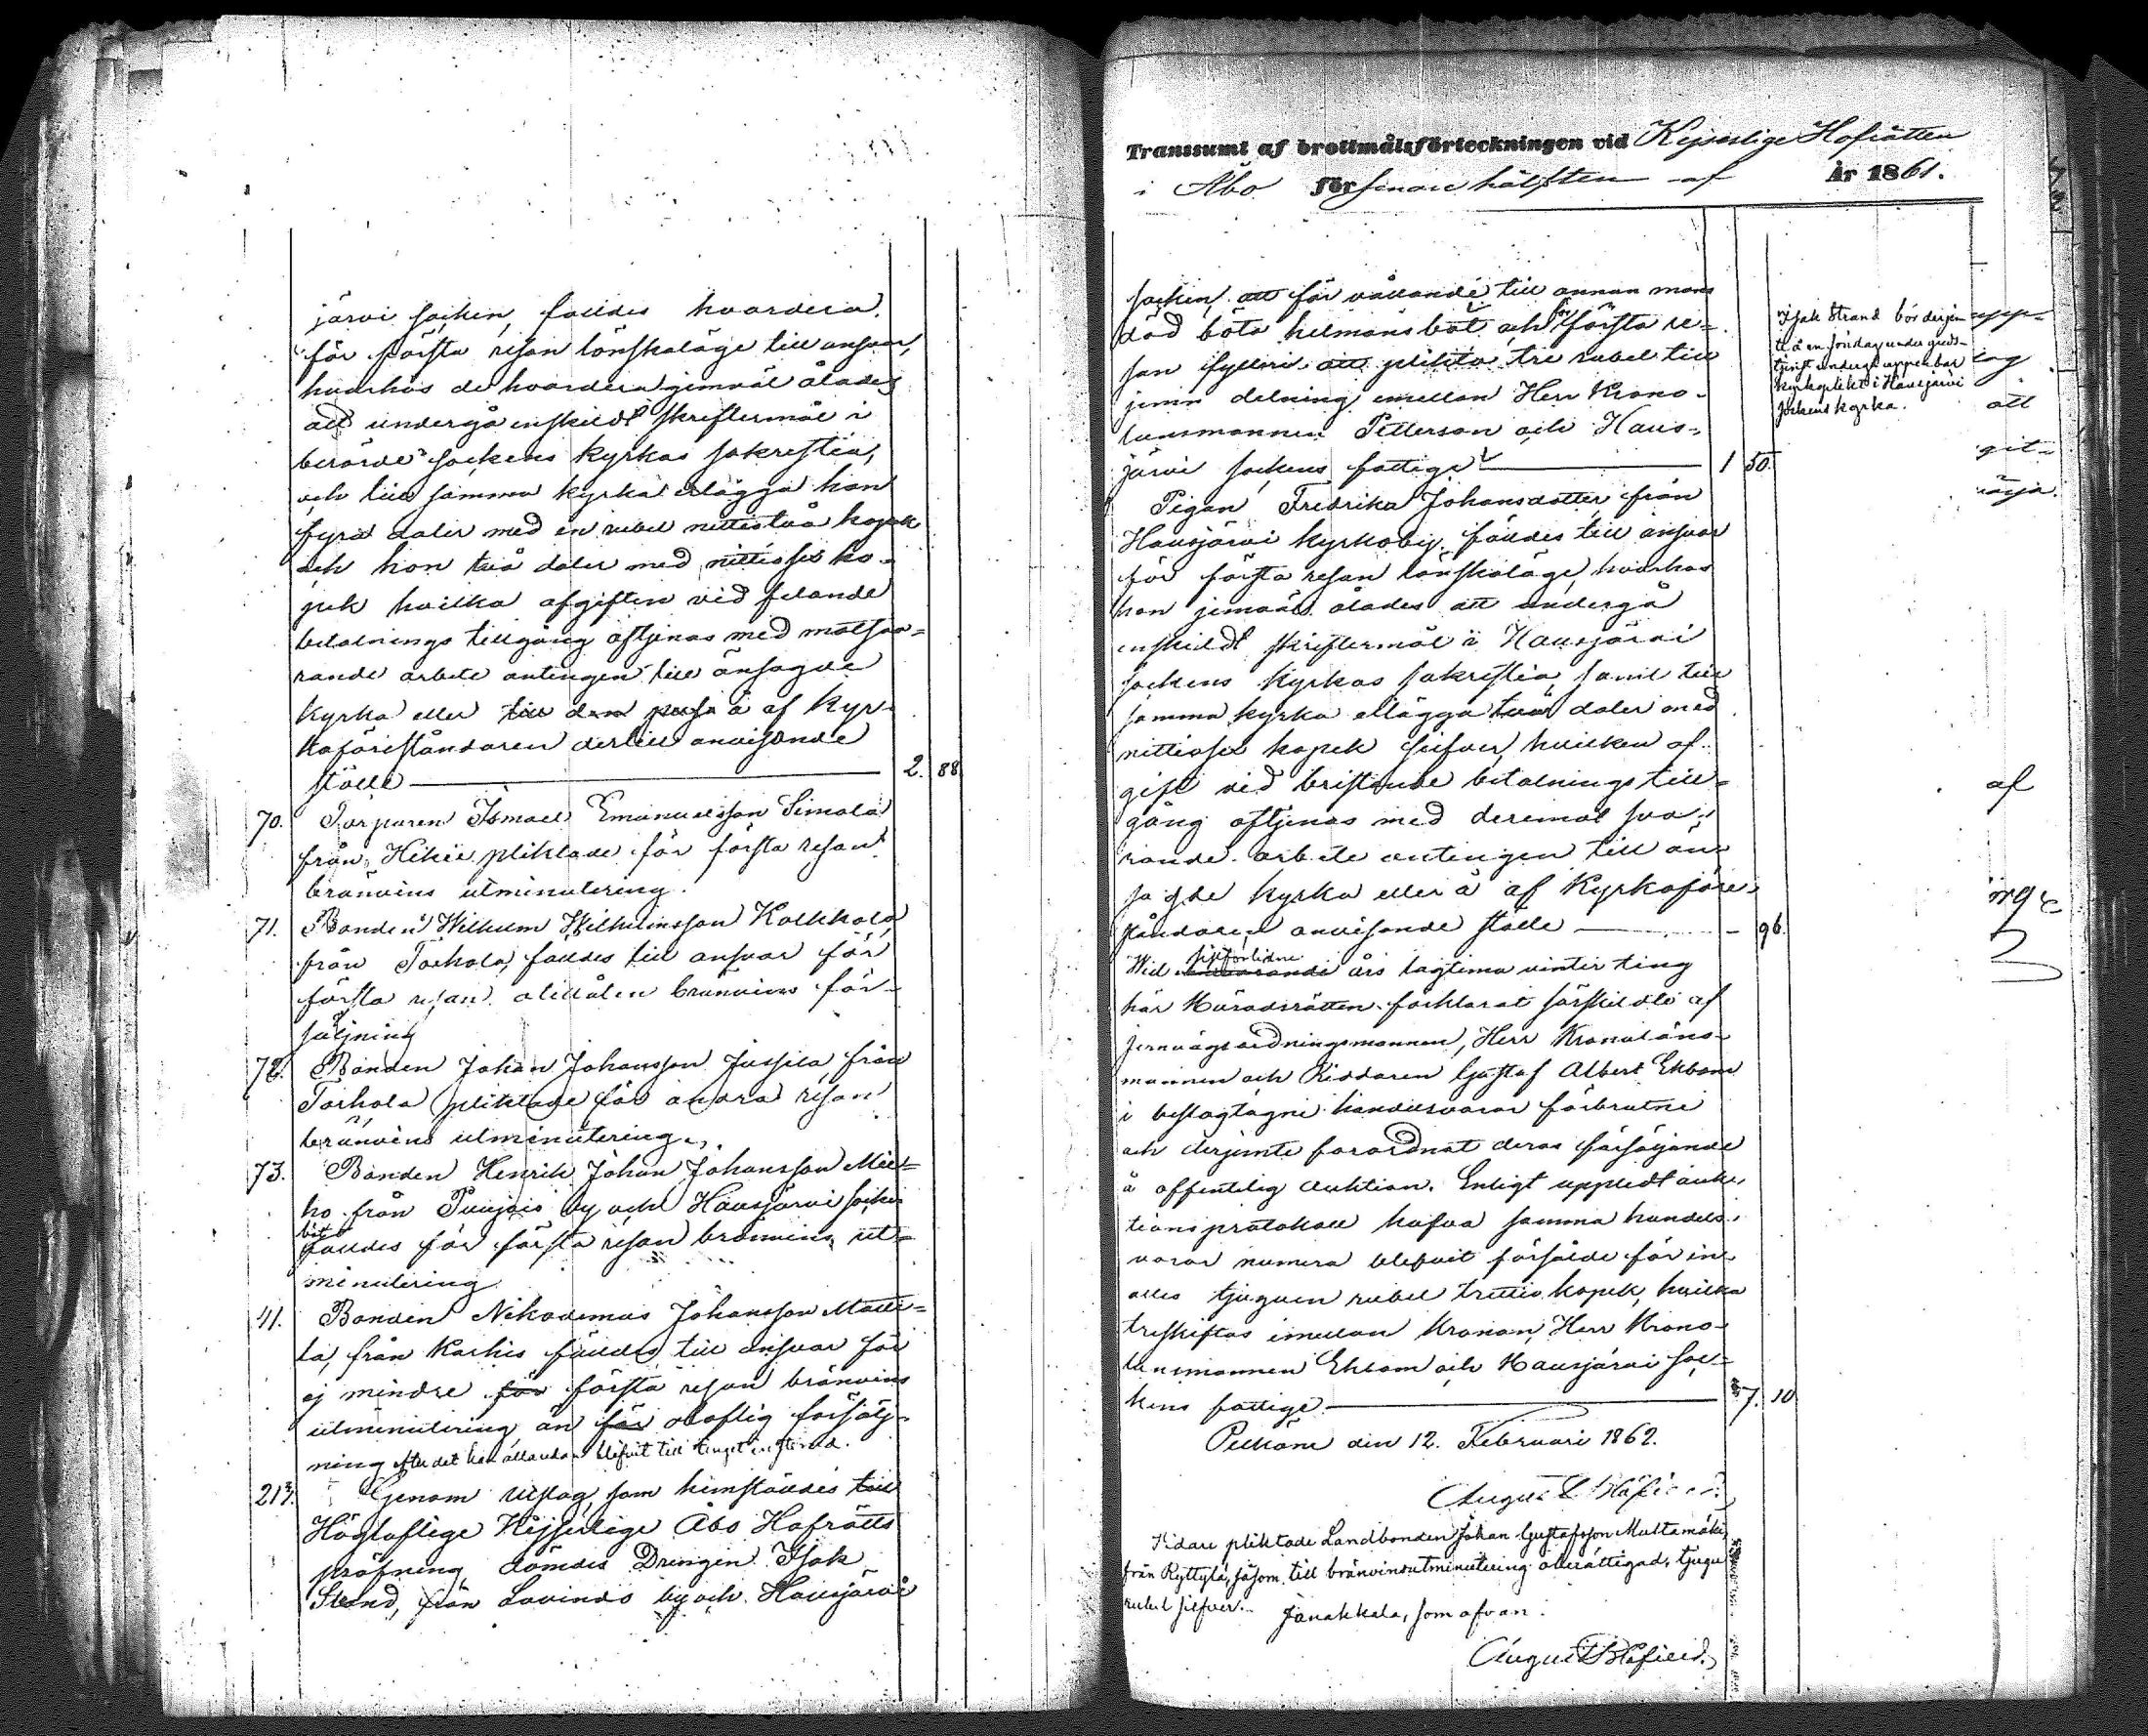 järvi socken, fälldes hvardera
för första resan lönskaläge till ansvar,
hvarhos de hvardera jemväl ålades
att undergå enskildt skriftermål i
berörde sockens kyrkas sakristia,
och till samma kyrka erlägga han
fyra daler med en rubel nittiotvå kopek
och hon två daler med nittiosex ko-
pek hvilka afgifter vid felande
betalnings tillgång aftjenas med motsva-
rande arbete antingen till ansagde
kyrka eller till den å af Kyr-
koföreståndaren dertill anvisande
ställe 2. 88
70. Torparen Ismael Emanuelsson Simola
från Hikiä pliktade för första resan
bränvins utminutering.
71. Bonden Wilhelm Wilhelmsson Kolkkala
från Torhola, fälldes till ansvar för
första resan olillåten bränvins för-
säljning
72. Bonden Johan Johansson Jussila från
Torhola pliktade för andra resan
bränvins utminutering.
73. Bonden Henrik Johan Johansson
ho från Puujois by och Hausjärvi socken
böt
fälldes för första resan bränvins ut-
minutering
41. Bonden Nikodemus Johansson Matti-
la, från Karhis fälldes till ansvar för
ej mindre för första resan bränvins
utminutering än för olaflig försälj-
ning efter det han blifvit till tinget instämd.
213. Genom utslag, som hemställdes till
Högloflige Kejserlige Åbo Hofrätts
pröfning, dömdes Drengen Isak
Strand, från Lavinds by och Hausjärvi
Transsumt af brottmålsförteckningen vid Kejserlige Hofrätten
i Åbo för senare hälften af År 1861.
socken, att för vållande till annan mans
död böta helmansbot och för första re-
san fylleri att plikta tre rubel till
jemn delning emellan Herr Krono-
länsmannen Petterson och Haus-
järvi sockens fattige 1 50.
Isak Strand bör derjem-
te å en söndag under guds-
tjenst undergå uppenbar
kyrkoplikt i Hausjärvi
sockens kyrka.
Pigan Fredrika Johansdotter från
Hausjärvi kyrkoby fälldes till ansvar
för första resan lönskaläge, hvarhos
hon jemväl ålades att undergå
enskildt skriftermål i Hausjärvi
sockens kyrkas sakristia samt till
samma kyrka erlägga två daler med
nittiosex kopek silfver, hvilken af-
gift vid bristande betalnings till-
gång aftjenas med deremot sva-
rande arbete antingen till an-
sagde kyrka eller å af Kyrkoföre-
ståndaren anvisande ställe – 96.
sistförlidne
Wid innevarande års lagtima vinter ting
har Häradsrätten förklarat särskildte af
jernvägsordningsmannen, Herr Kronolänsman-
mannen och Riddaren Gustaf Albert Ekbom
i beslagtagne handelsvaror förbrutne
och derjemte förordnat deras försäljande
å offentelig auktion. Enligt uppvist auk-
tionsprotokoll hafva samma handels-
varor numera blefvit försålde för in-
alles tjuguen rubel trettio kopek, hvilka
treskiftas imellan Kronan, Herr Krono-
länsmannen Ekbom och Hausjärvi soc-
kens fattige 7. 10
Pelkäne den 12. Februari 1862.
August Blåfield.
Vidare pliktade Landbonden Johan Gustafsson Multamäki
från Ryttylä, såsom till bränvinsutminutering oberättigad, tjugu
rubel silfver. Janakkala, som ofvan.
August Blåfield.
att
af